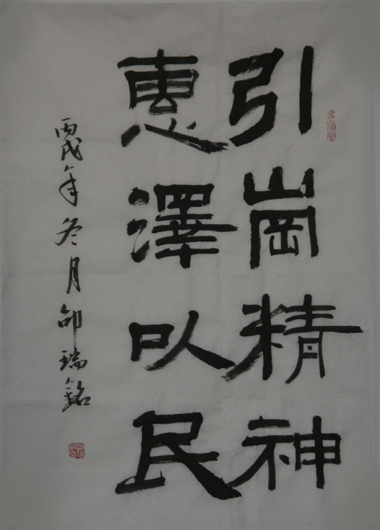 引崗精神
惠澤以民
丙戌年冬月卯瑞銘